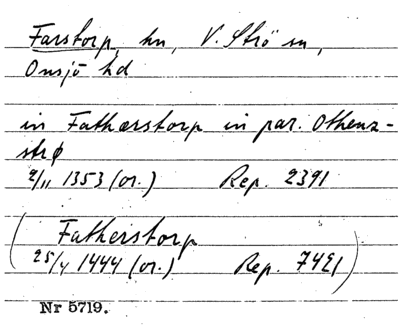 Farstorp, hn, V. Strö sn,
Onsjö hd
in Fathærstorp in par. Othenz-
strø
2/11 1353 (or.) Rep. 2391
(Fatherstorp
25/4 1444 (or.) Rep. 7421)
Nr 5719.